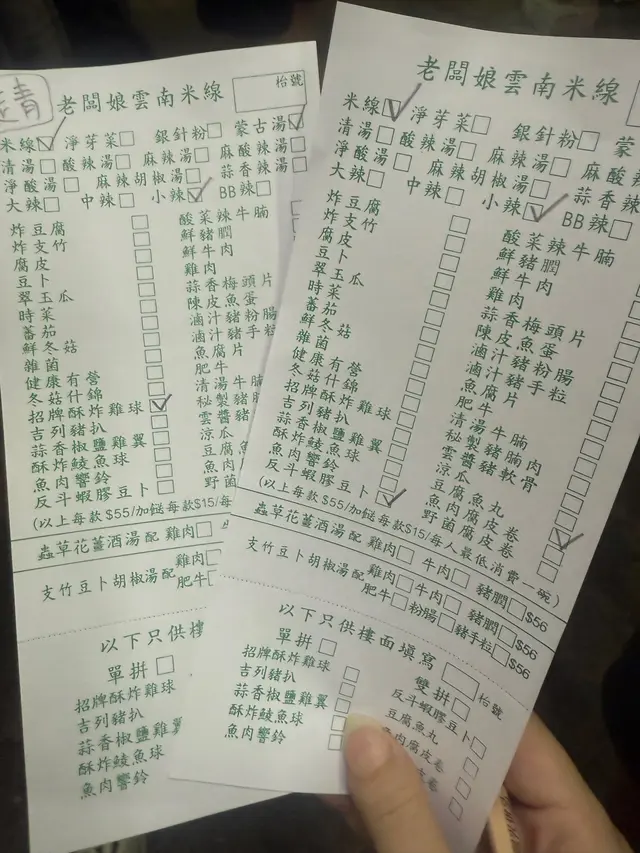 走青
老闆娘雲南米線
枱號
米線 淨芽菜 銀針粉 蒙古湯
清湯 酸辣湯 麻辣湯 麻酸辣湯
淨酸湯 麻辣胡椒湯 蒜香辣湯
大辣 中辣 小辣 BB辣
炸豆腐 酸菜辣牛腩
炸支竹 鮮豬膶
腐皮 鮮牛肉
豆卜 雞肉
翠玉瓜 蒜香梅頭片
時菜 陳皮魚蛋
蕃茄 滷汁豬粉腸
鮮冬菇 滷汁豬手粒
雜菌 魚腐片
健康有營 肥牛
冬菇什錦 清湯牛腩
招牌酥炸雞球 秘製豬腩
吉列豬扒 雲醬豬
蒜香椒鹽雞翼 涼瓜
酥炸鯪魚球 豆腐魚
魚肉響鈴 魚肉
反斗蝦膠豆卜 野菌
(以上每款$55/加餸每款$15/每
蟲草花薑酒湯配 雞肉
支竹豆卜胡椒湯配 雞肉
肥牛
以下只供樓
單拼
招牌酥炸雞球
吉列豬扒
蒜香椒鹽雞翼
酥炸鯪魚球
魚肉響鈴
老闆娘雲南米線
米線 淨芽菜 銀針粉 蒙
清湯 酸辣湯 麻辣湯 麻酸
淨酸湯 麻辣胡椒湯 蒜香辣
大辣 中辣 小辣 BB辣
炸豆腐 酸菜辣牛腩
炸支竹 鮮豬膶
腐皮 鮮牛肉
豆卜 雞肉
翠玉瓜 蒜香梅頭片
時菜 陳皮魚蛋
蕃茄 滷汁豬粉腸
鮮冬菇 滷汁豬手粒
雜菌 魚腐片
健康有營 肥牛
冬菇什錦 清湯牛腩
招牌酥炸雞球 秘製豬腩肉
吉列豬扒 雲醬豬軟骨
蒜香椒鹽雞翼 涼瓜
酥炸鯪魚球 豆腐魚丸
魚肉響鈴 魚肉腐皮卷
反斗蝦膠豆卜 野菌腐皮卷
(以上每款$55/加餸每款$15/每人最低消費一碗)
蟲草花薑酒湯配 雞肉 牛肉 豬膶 $56
支竹豆卜胡椒湯配 雞肉 牛肉 豬膶 $56
肥牛 粉腸 豬手粒 $56
以下只供樓面填寫 枱號
單拼 雙拼
招牌酥炸雞球 反斗蝦膠豆卜
吉列豬扒 豆腐魚丸
蒜香椒鹽雞翼 肉腐皮卷
酥炸鯪魚球 皮卷
魚肉響鈴